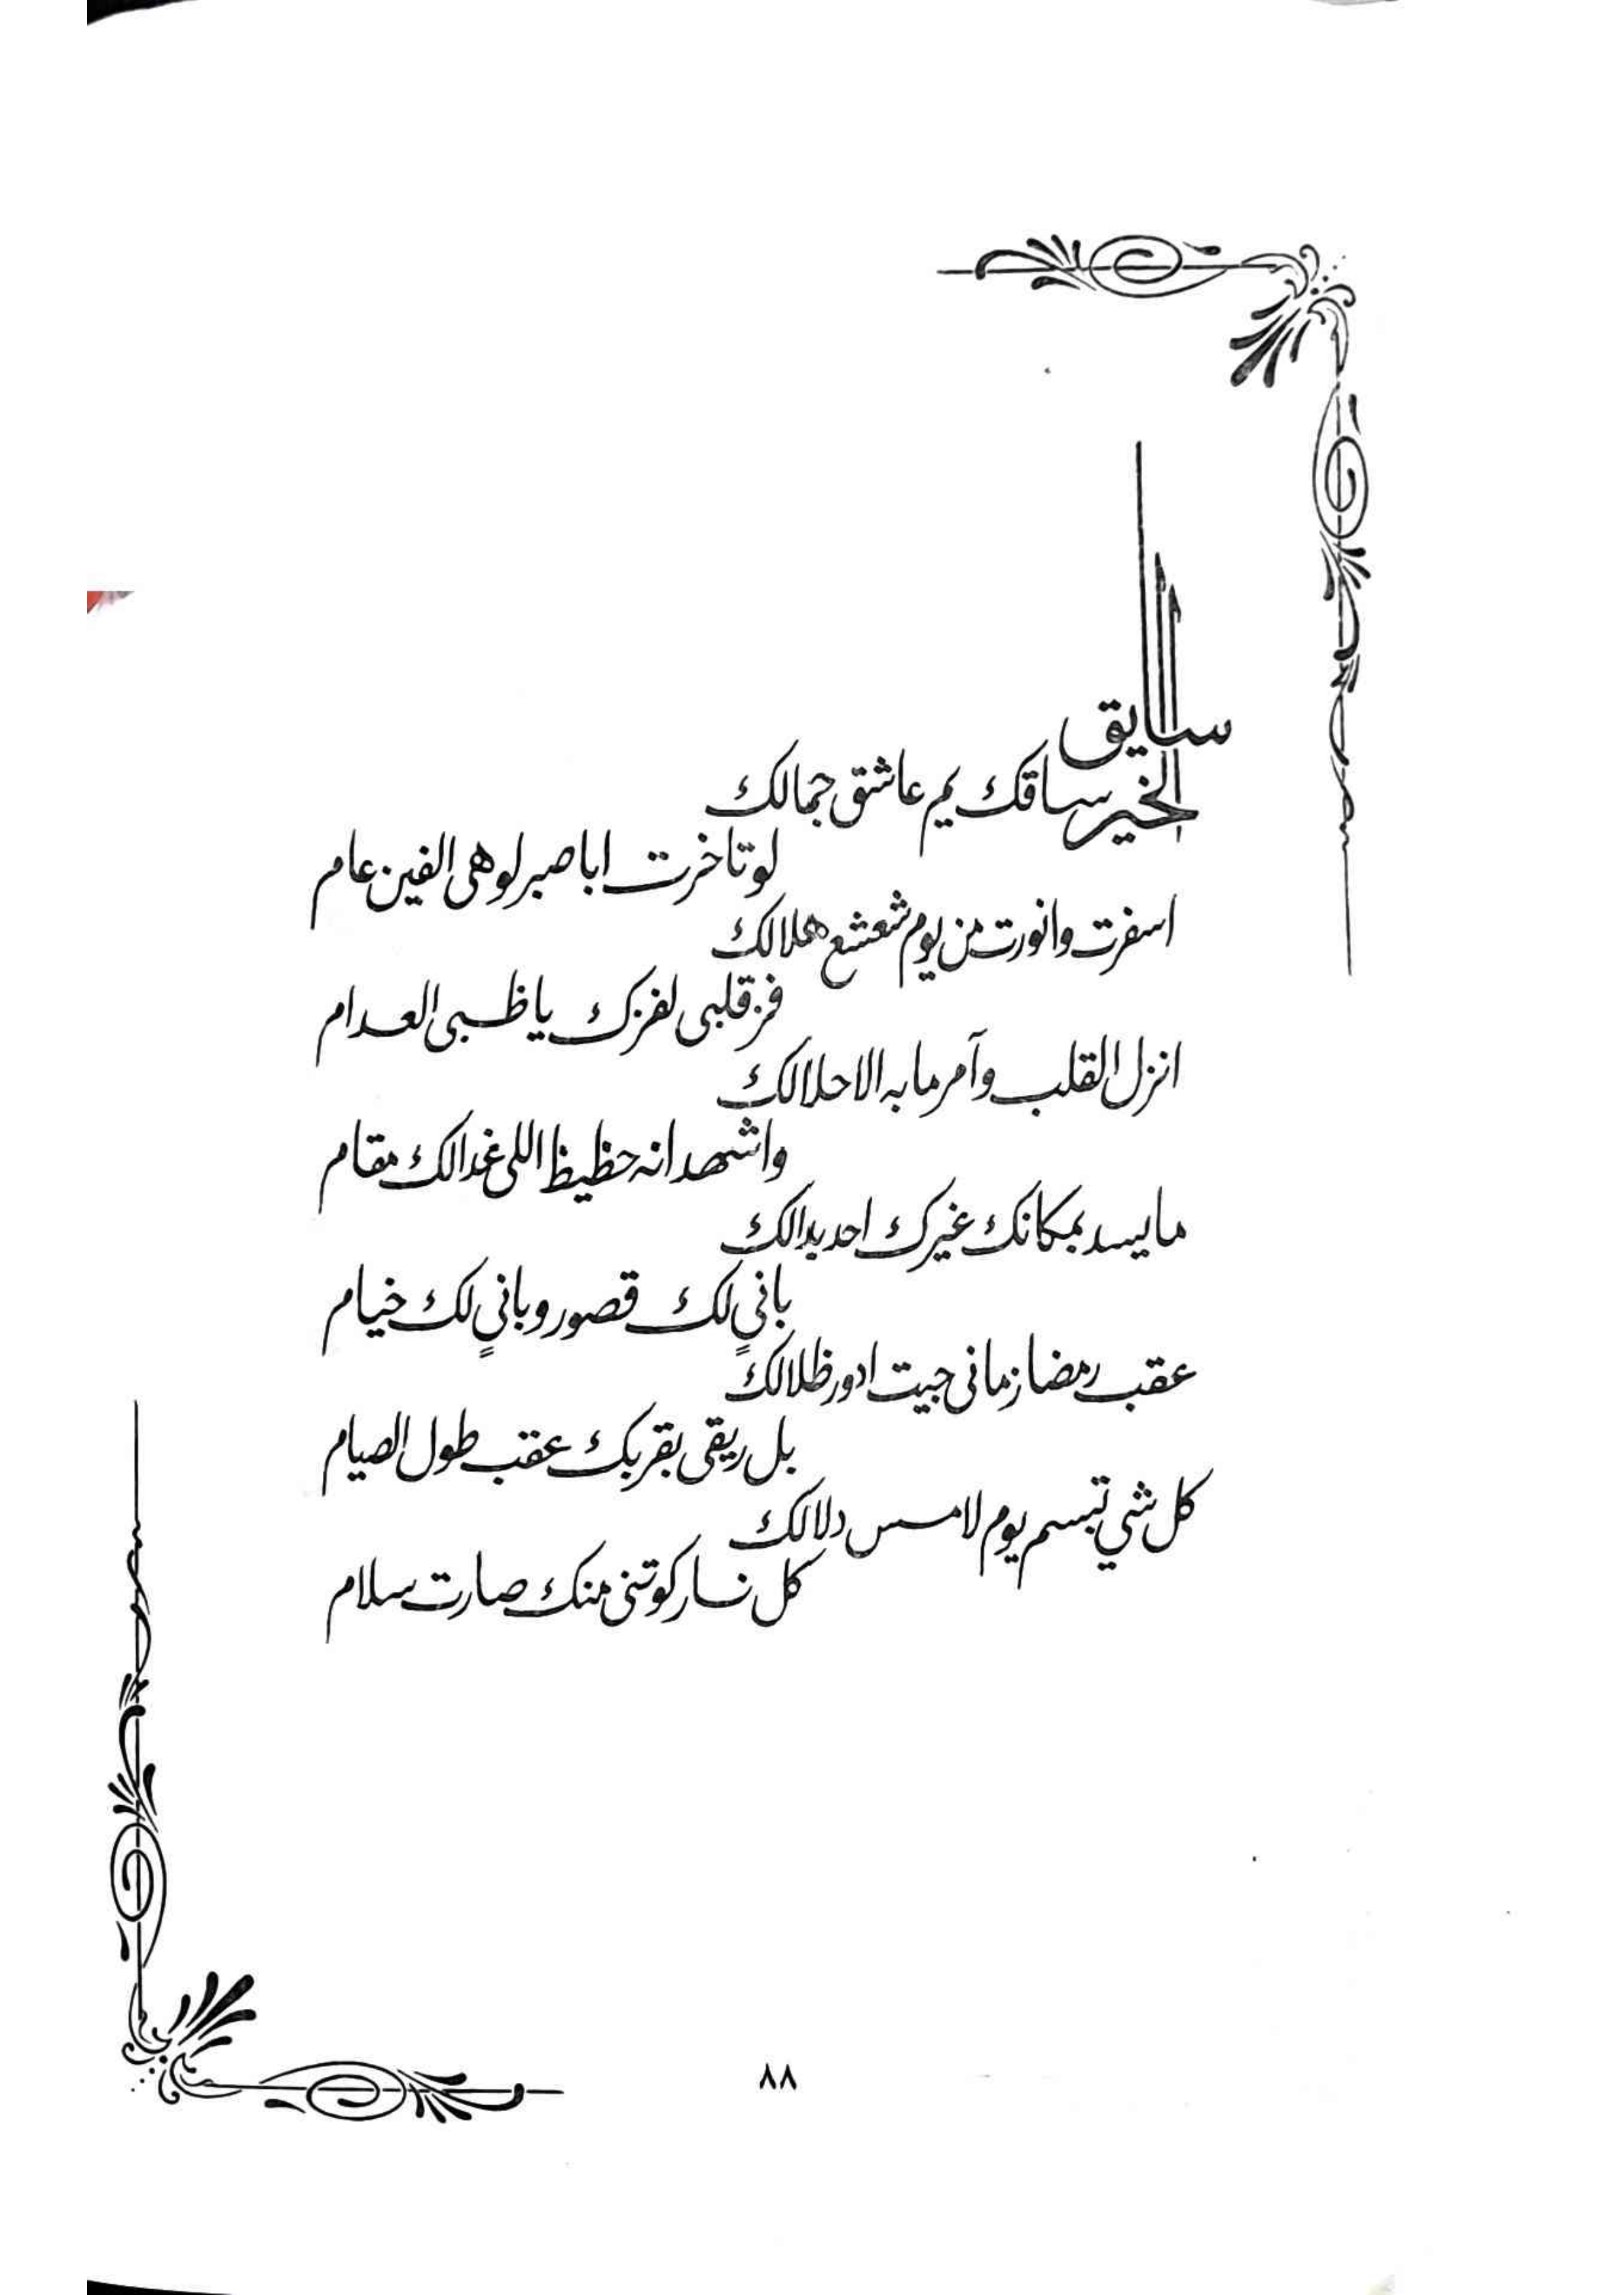 سايق
الخير ساقك يم عاشق جمالك
لو تاخرت اباصبر لو هي الفين عام
اسفرت وانورت من يوم شعشع هلالك
فز قلبي لفزك يا ظبي العدام
انزل القلب وآمر ما به الا حلالك
واشهد انه حظيظ اللي غدالك مقام
ما يسد بمكانك غيرك احد بدالك
بانيٍ لك قصور وبانيٍ لك خيام
عقب رمضا زماني جيت ادور ظلالك
بل ريقي بقربك عقب طول الصيام
كل شي تبسم يوم لامس دلالك
كل نار كوتني منك صارت سلام
٨٨